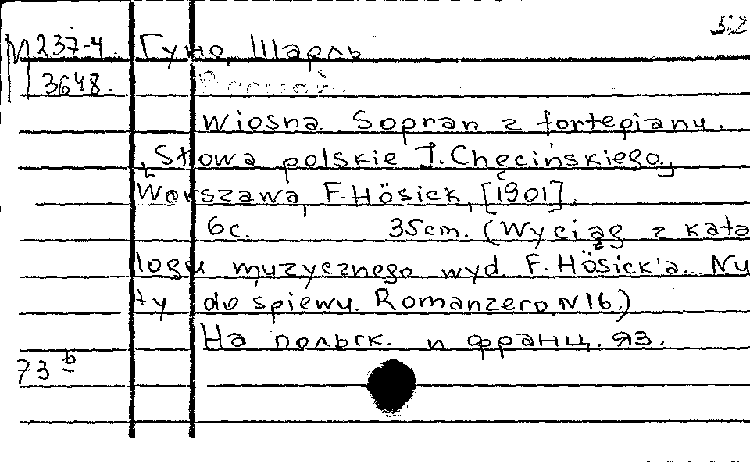 52
М 237-4. Гуно, Шарль
3648.
Wiosna. Sopran z fortepianu.
Słowa polskie J. Chęcińskiego,
Warszawa, F. Hösick, [1901].
6 с. 35 cm. (Wyciąg z kata
logu muzycznego wyd. F. Hösick'a. Nu
ty do śpiewu. Romanzero, N 16.)
На польск. и франц. яз.
73 b